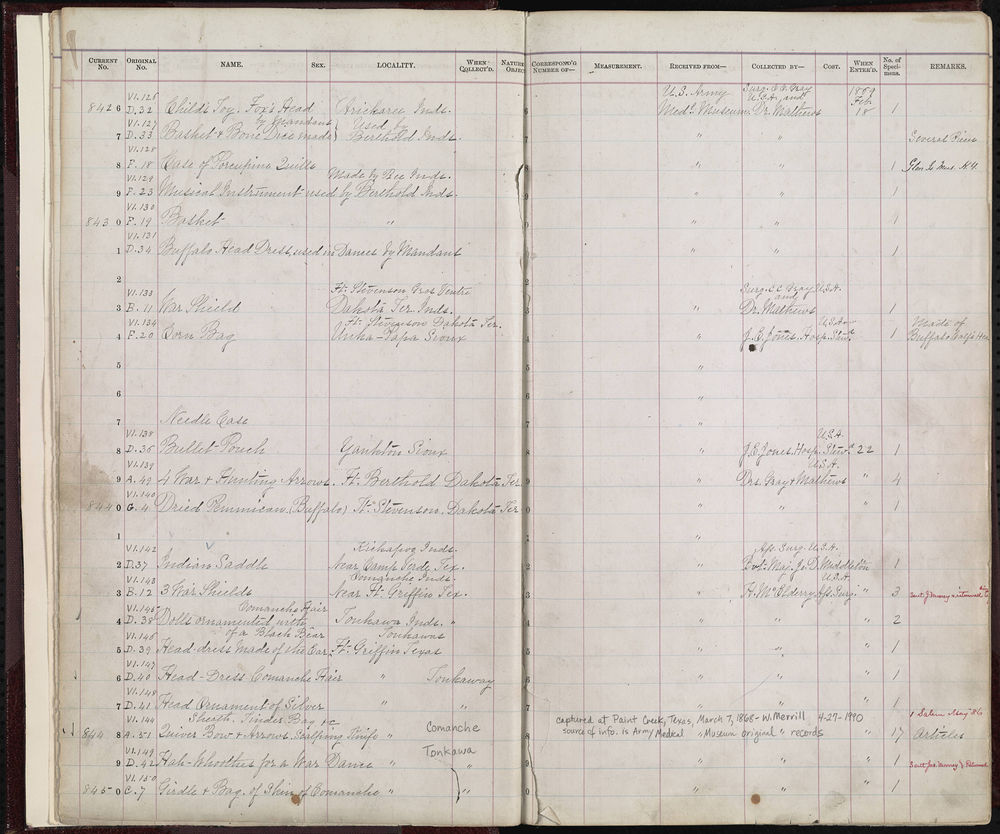 CURRENT No. ORIGINAL No. NAME. SEX. LOCALITY. WHEN COLLECT'D. NATURE OBJEC CORRESPOND'G NUMBER OF— MEASUREMENT. RECEIVED FROM— COLLECTED BY— COST. WHEN ENTER'D. No. of Speci-mens. REMARKS.
VI.126 U.S. Army Surg. C.C. Gray U.S.A. and 1869 Feb
8426 D.32 Child's Toy, Fox's Head Arickaree Inds. 6 Medl. Museum Dr. Mathews 18 1
VI.127 by Mandans Used by
7 D.33 Basket & Bone Dice made Berthold Inds. 7 " " Several Pieces
VI.128
8 F.18 Case of Porcupine Quills 8 " " 1
VI.129 Made by Ree Inds.
9 F.23 Musical Instrument used by Berthold Inds. 9 " " 1
VI.130
8430 F.19 Basket " 0 " " 1
VI.131
1 D.34 Buffalo Head Dress, used in Dances by Mandans 1 " " 1
2 2 "
VI.133 Ft. Stevenson Gros Ventre Surg. C.C. Gray U.S.A. and
3 B.11 War Shield Dakota Ter. Inds. 3 " Dr. Mathews 1
VI.134 Ft. Stevenson Dakota Ter. U.S.A. Made of
4 F.20 Corn Bag Unka-Papa Sioux 4 " J.E. Jones, Hosp. Stwd 1 Buffalo Calf's
5 5 "
6 6 "
7 Needle Case 7 "
VI.138 U.S.A.
8 D.36 Bullet Pouch Yankton Sioux 8 J.E. Jones, Hosp. Stwd 22 1
VI.139 U.S.A.
9 A.49 4 War & Hunting Arrows. Ft. Berthold Dakota Ter 9 " Drs. Gray & Mathews " 4
VI.140
8440 G.4 Dried Pemmican (Buffalo) Ft. Stevenson, Dakota Ter 0 " " " 1
1 1 "
VI.142 Kickapoo Inds. Ass. Surg. U.S.A.
2 D.37 Indian Saddle Near Camp Verde, Tex. 2 " Bvt. Maj. J.D. Middleton " 1
VI.143 Comanche Inds. U.S.A.
3 B.12 3 War Shields Near Ft. Griffin Tex. 3 " H. McElderry Ass Surg. " 3
VI.145 Comanche Hair
4 D.38 Dolls ornamented with Tonkawa Inds. " 4 " " " 2
VI.146 of a Black Bear Tonkawas
5 D.39 Head-dress Made of the Ear; Ft. Griffin Texas 5 " " " 1
VI.147
6 D.40 Head-Dress Comanche Hair " Tonkaway 6 " " " 1
VI.148
7 D.41 Head Ornament of Silver " " 7 " " " 1
VI.144 Sheath, Tinder Bag &c Comanche captured at Paint Creek, Texas, March 7, 1868 - W. Merrill 4-27-1990 1 Salem May '86
844 8 A.51 Quiver Bow & Arrows, Scalping Knife " 8 source of info. is Army Medical " Museum original " records " 17 Articles
VI.149 Tonkawa
9 D.42 Hah-Whoothes for a War Dance " " 9 " " " 1
VI.150
8450 C.7 Girdle & Bag, of Skin of Comanche " " 0 " " " 1